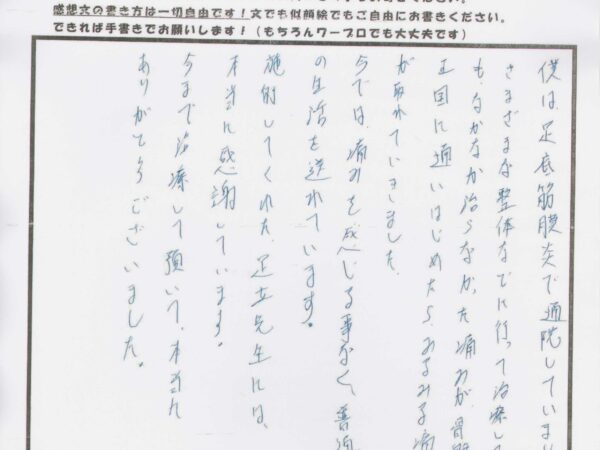 感想文の書き方は一切自由です!文でも似顔絵でもご自由にお書きください。
できれば手書きでお願いします!(もちろんワープロでも大丈夫です)
僕は足底筋膜炎で通院していま
さまざまな整体などに行って治療し
も、なかなか治らなかった痛みが、骨
王国に通いはじめたら、みるみる痛
が取れていきました。
今では、痛みを感じる事なく、普通
の生活を送れています。
施術してくれた、足立先生には、
本当に感謝しています。
今まで治療して頂いて、本当に
ありがとうございました。